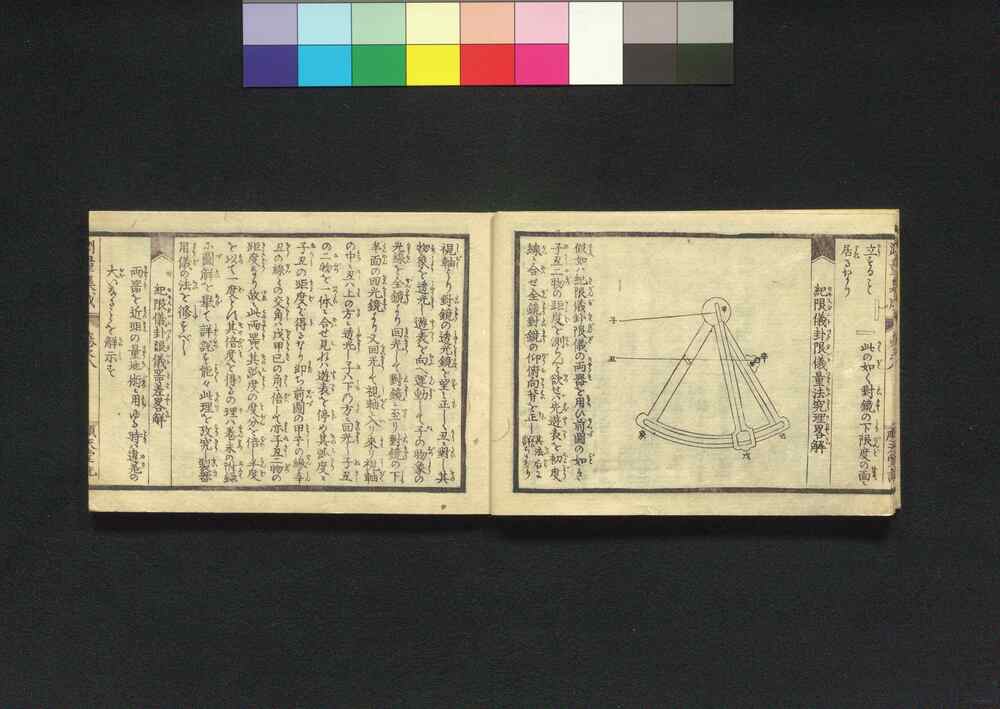 立つると
居るなり
此の如く對鏡の下限度の面
紀限儀卦限儀量法究理畧解
甲
子
丑
辛
癸
戊
己
假如ハ紀限儀卦限儀の両器を用ひ前圖の如き
子丑二物の距度を測らんと欲せハ先遊表を初度
線に合せ全鏡對鏡の仰俯向背を正し
視軸より對鏡の透光鏡を望て正しく丑を刺し其
物象を透光し遊表を向へ運動して子の物象の
光線を全鏡より回光して對鏡に至り對鏡の下
半面の回光鏡より又回光して視軸へ入り来り視軸
の中に丑ハ上の方に透光し子ハ下の方に回光し子丑
の二物を一体に合せ見れハ遊表を停め其弧度に
子丑の距度を得るなり即ち前圖の甲子の線と辛
丑の線との交角ハ戊甲己の角に倍して亦子丑二物の
距度なり故に此両器ハ其弧度の度分を倍し半度
を以て一度とし其倍度を得るの理ハ巻末の附録
に圖解を舉て詳説を能々此理を攷究し製器
用儀の法を修むべし
紀限儀卦限儀器差畧解
両器を近距の量地術に用ゆる時ハ違差の
大いなるを解示す